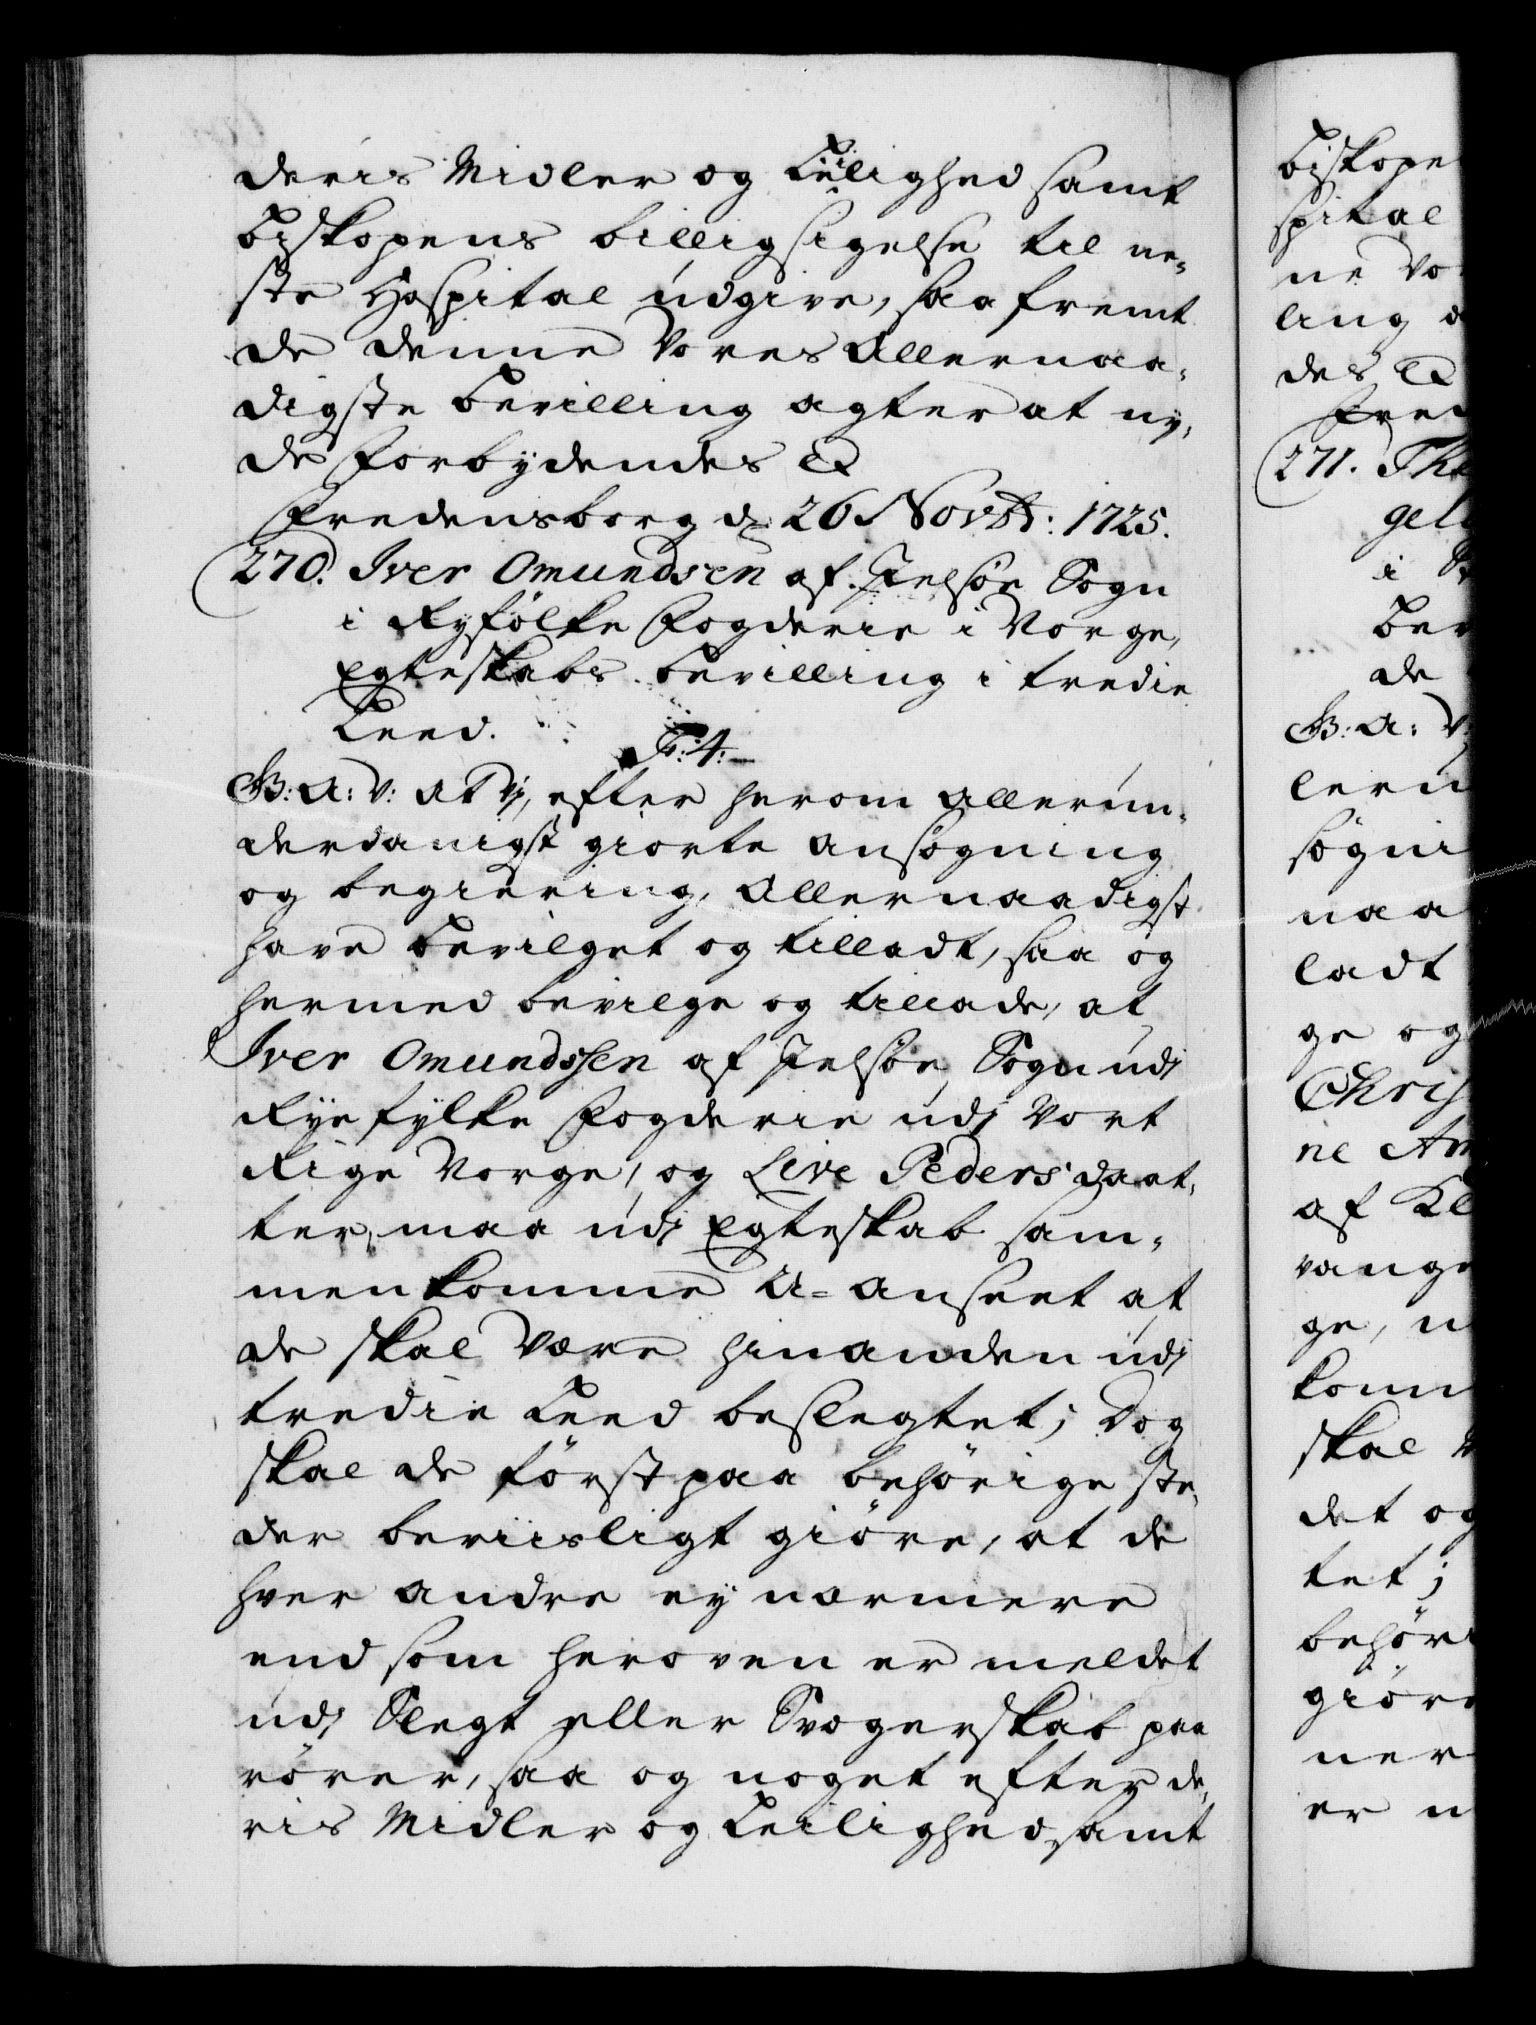 deris Midler og Leilighed samt
Biskopens billigsigelse til ne-
ste Hospital udgive, saa fremt
de denne Vores Allernaa-
digste Bevilling agter at ny-
de Forbydendes &c
Fredensborg d: 26 Novbr: 1725.
270. Iver Omundsen af Jelsöe Sogn
i Ryfölke Fogderie i Norge,
Egteskabs bevilling i tredie
Leed.
F: 4:
G: A: V: At Vi, efter herom allerun-
derdanigst giorte ansögning
og begiering, Allernaadigst
have bevilget og tilladt, saa og
hermed bevilge og tillade, at
Iver Omundssen af Jelsöe Sogn udi
Ryefylke Fogderie udi Vort
Rige Norge, og Live Peders daat-
ter, maa udi Egteskab sam-
menkomme U-anseet at
de skal være hinanden udi
tredie Leed beslegtet; Dog
skal de först paa behörige ste-
der beviisligt giöre, at de
hver andre ey nærmere
end som heroven er meldet
udi Slegt eller Svogerskab paa
rörer, saa og noget efter de-
ris Midler og Leilighed samt
Biskope
spital
ne Vo
ling a
des &c
Fred
271. Th
gel
i
Bev
de
G: A: V:
lern
sögni
naa
ladt
ge og
Chris
ne An
af Kl
vange
ge, u
komm
skal
det og
tet;
behöri
giöre
ner
er u